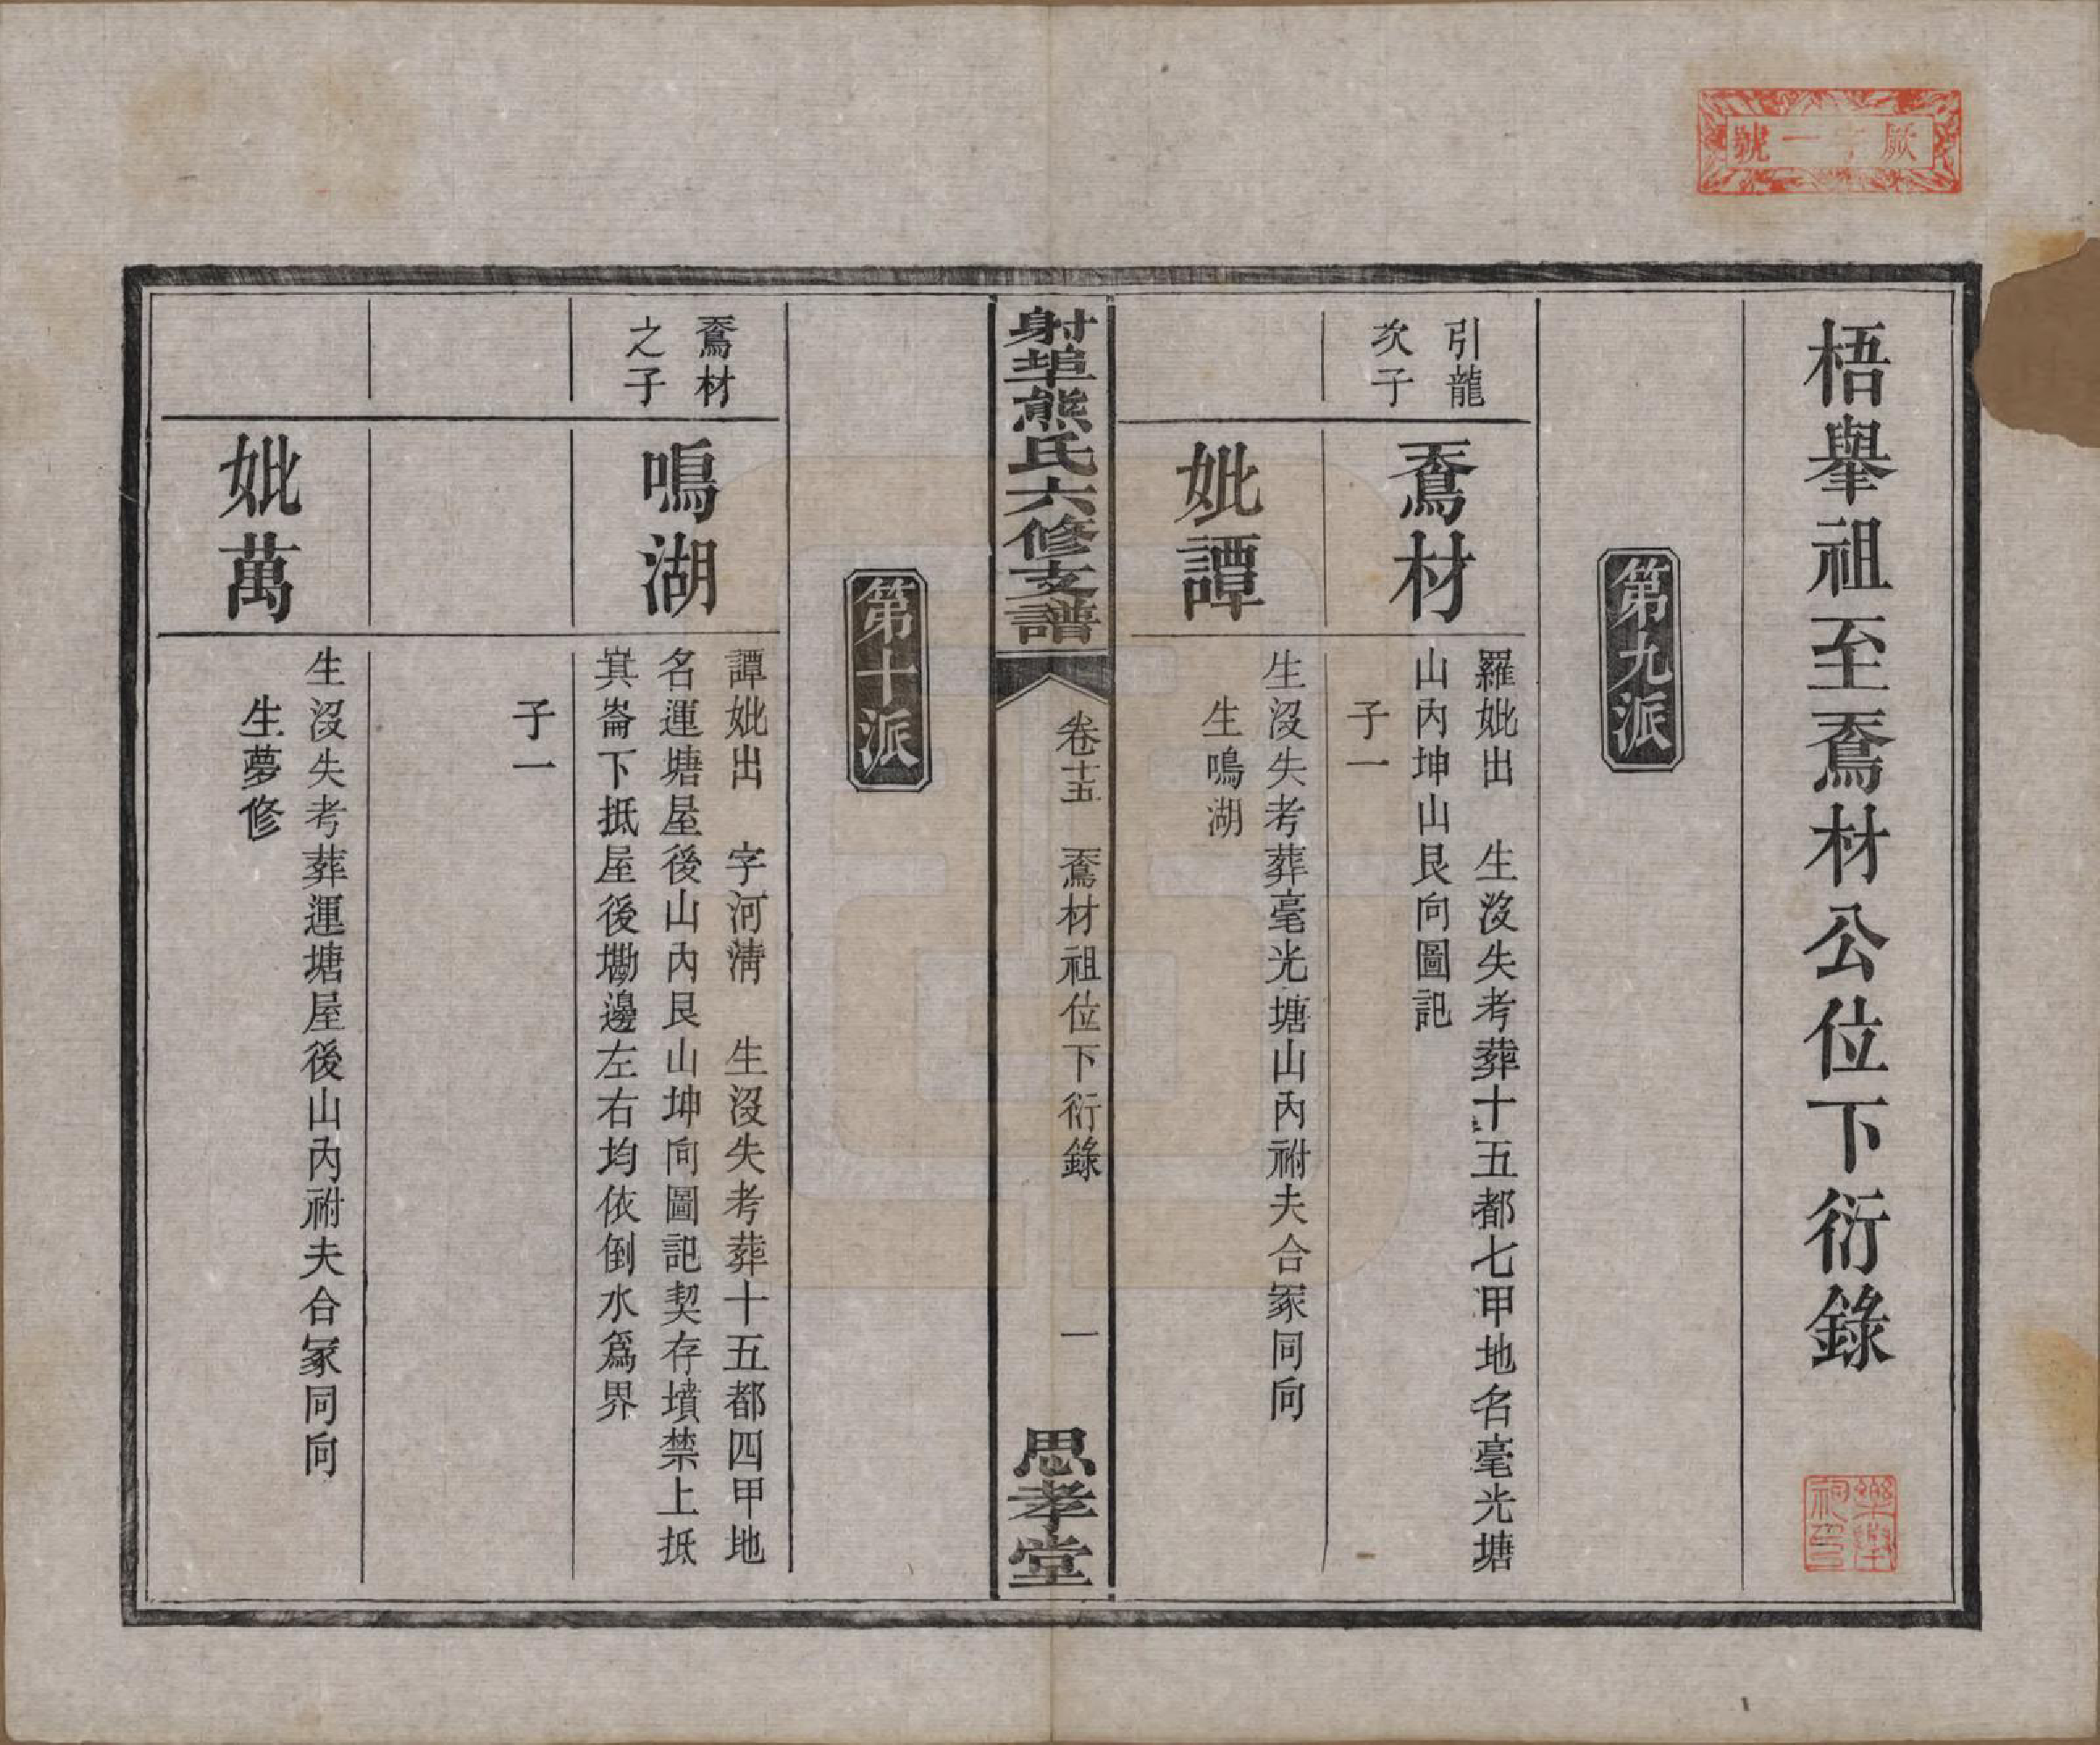 梧擧祖至鴌材公位下衍錄
第九派
引龍
次子
鴌材
羅妣出　生沒失考葬十五都七甲地名毫光塘
山內坤山艮向圖記
子一
妣譚
生沒失考葬毫光塘山內祔夫合冢同向
生鳴湖
射埠熊氏六修支譜
卷十五　鴌材祖位下衍錄　一
思孝堂
第十派
鴌材
之子
鳴湖
譚妣出　字河淸　生沒失考葬十五都四甲地
名運塘屋後山內艮山坤向圖記契存墳禁上抵
塓崙下抵屋後墈邊左右均依倒水爲界
子一
妣萬
生沒失考葬運塘屋後山內祔夫合冢同向
生夢修